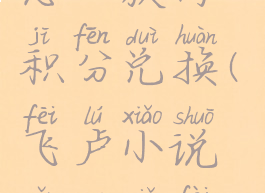 jī fēn duì huàn
积分兑换(
fēi lú xiǎo shuō
飞卢小说